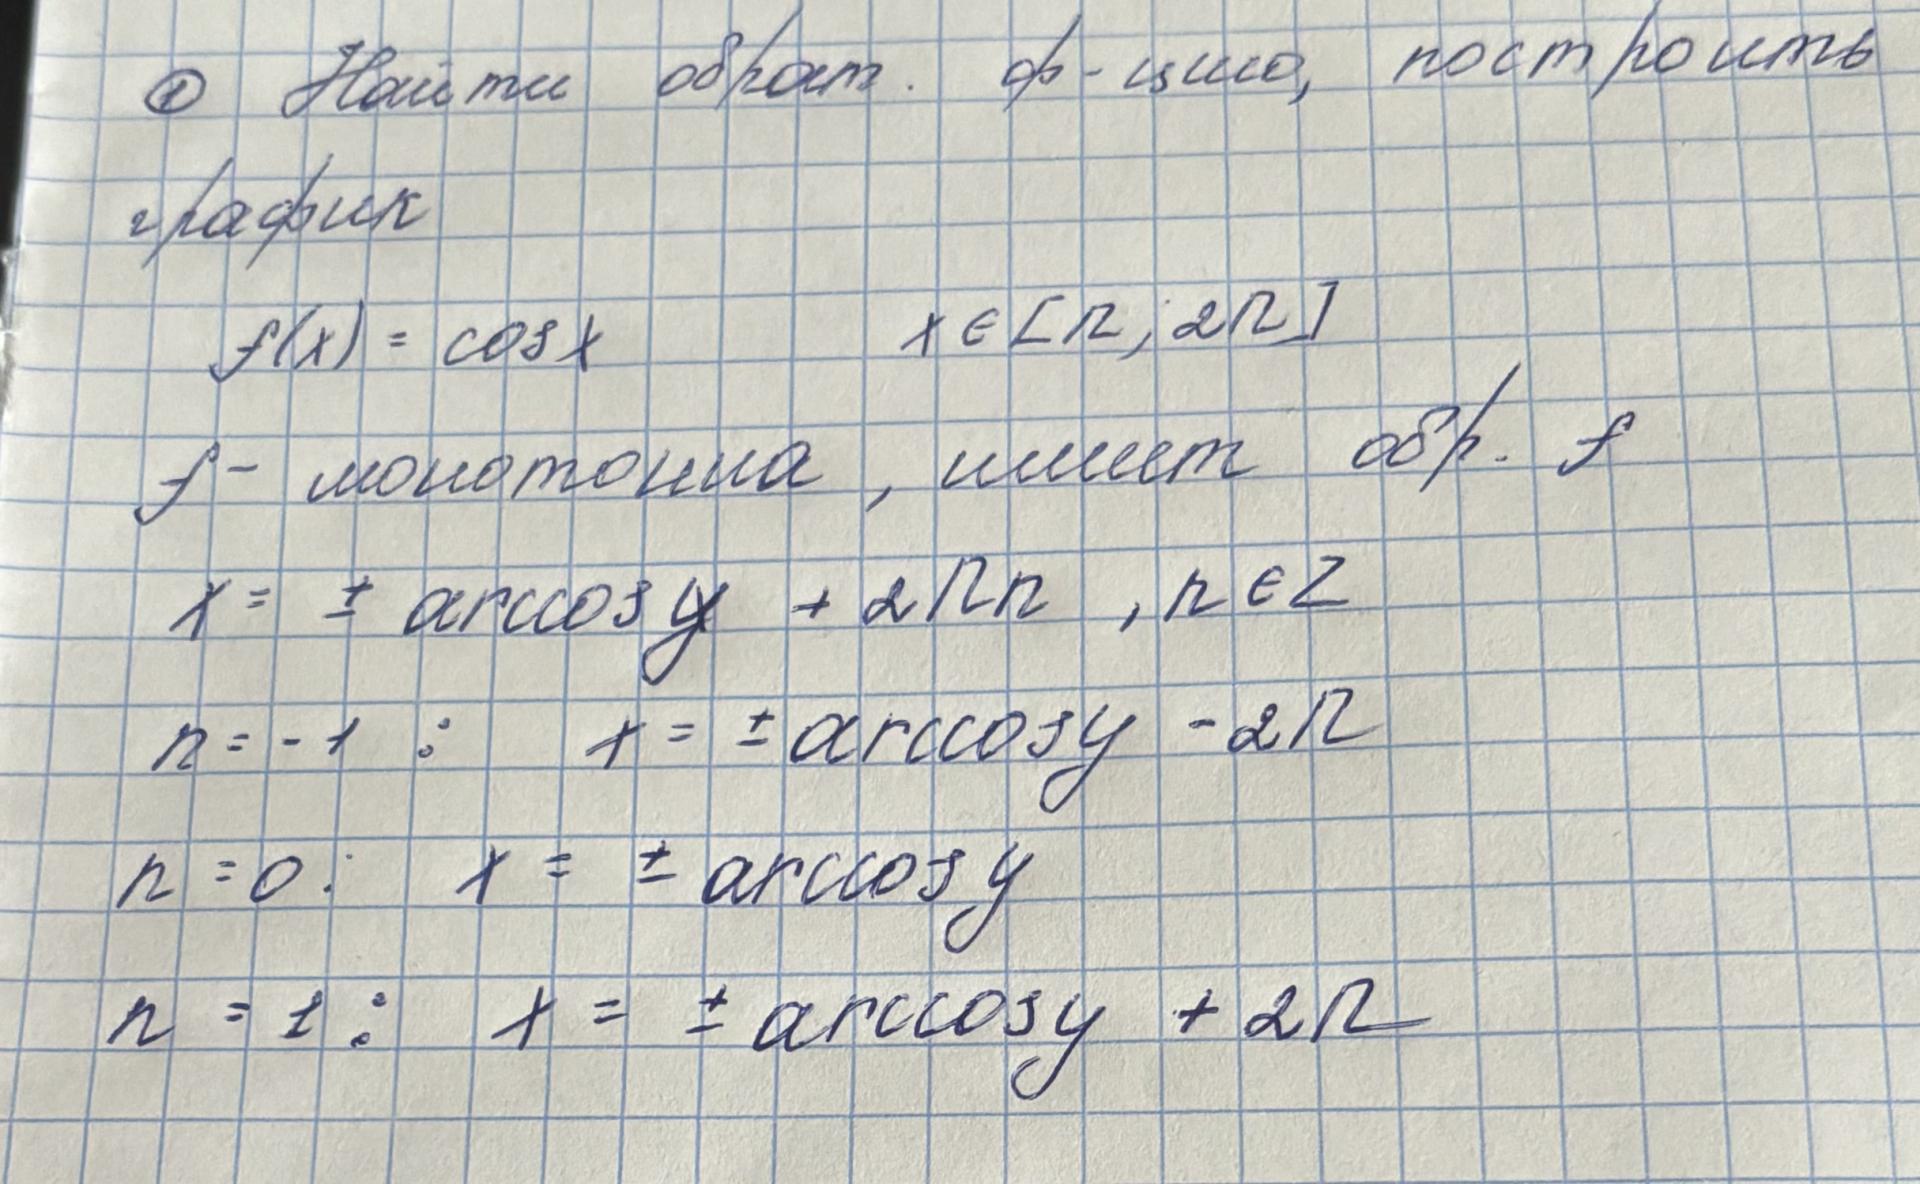 ① Найти обрат. ф-цию, построить
график
f(x) = cosx x ∈ [П; 2П]
f - монотонна, имеет обр. f
x = ± arccosy + 2Пn , n ∈ Z
n = -1 : x = ± arccosy - 2П
n = 0: x = ± arccosy
n = 1 : x = ± arccosy + 2П